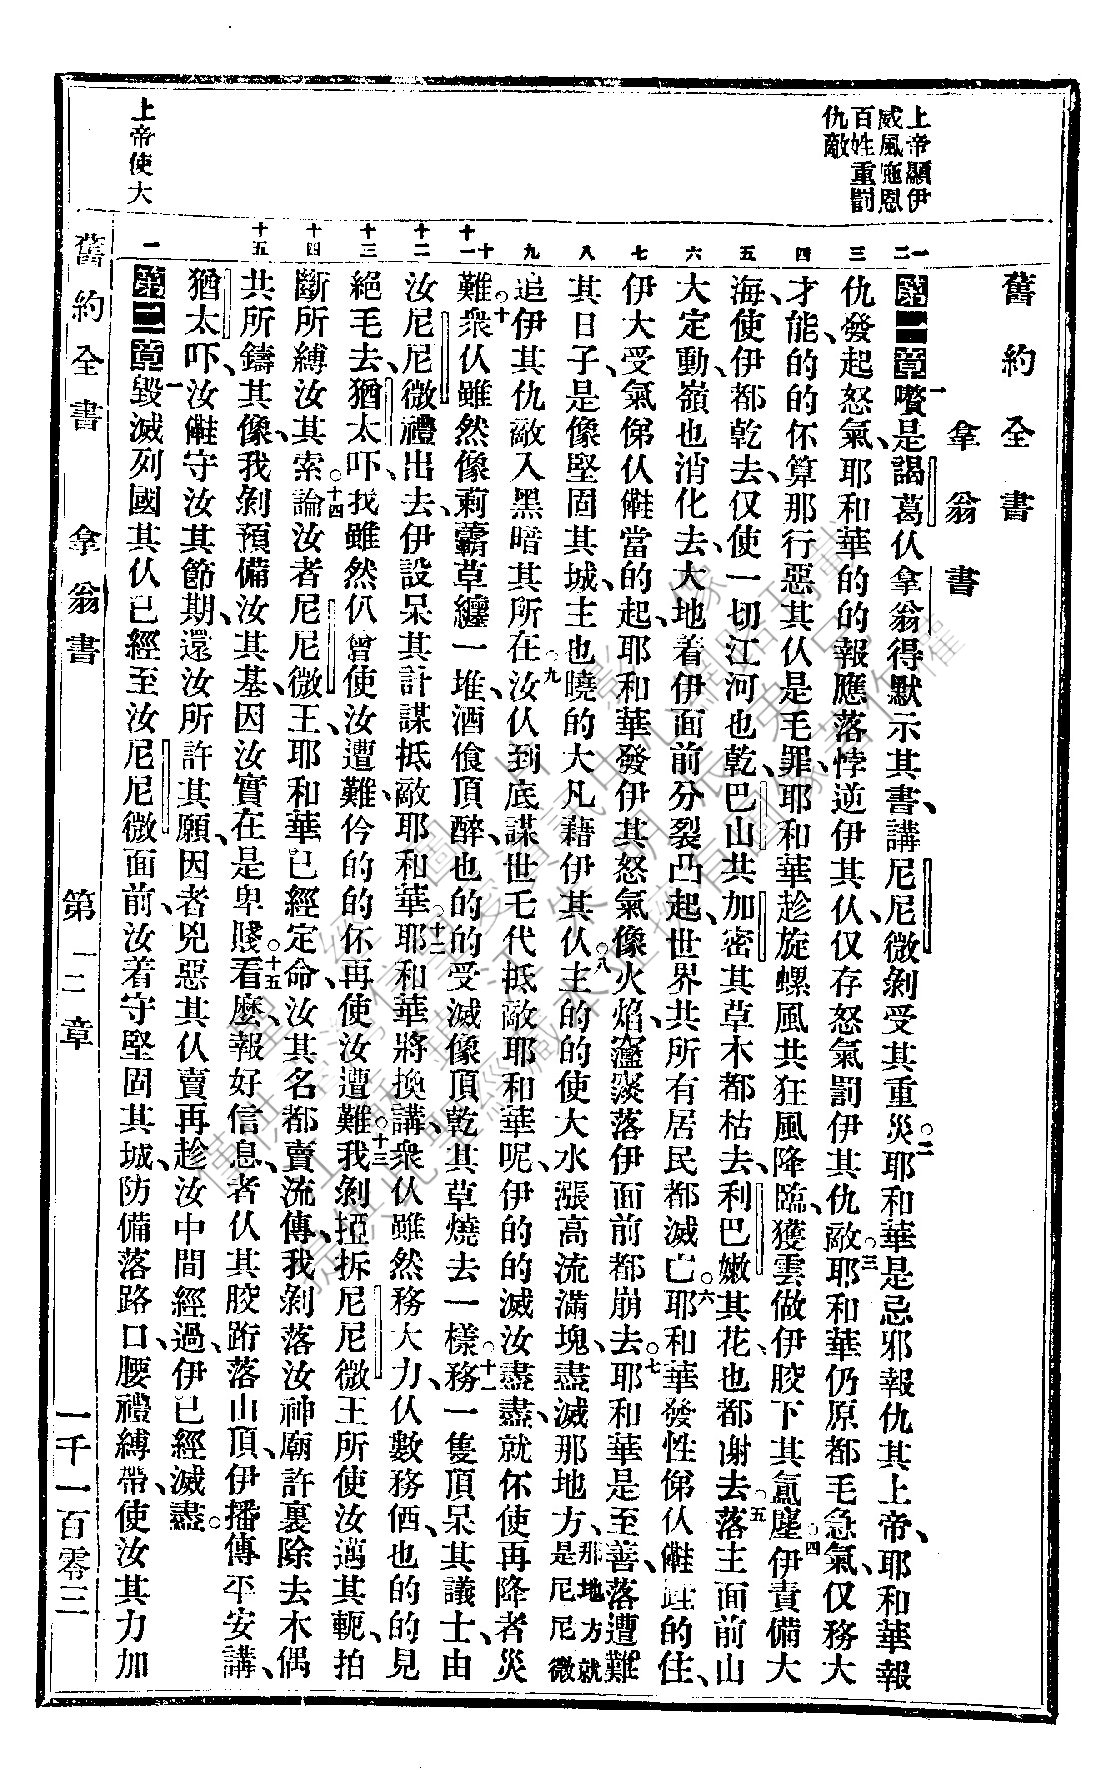 舊約全書
拿翁書
上帝顯伊
威風施恩
百姓重罰
仇敵
上帝使大
一
二
三
四
五
六
七
八
九
十
十一
十二
十三
十四
十五
一
第一章 一嚽是謁葛仈拿翁得默示其書、講尼尼微剝受其重災。二耶和華是忌邪報仇其上帝、耶和華報
仇、發起怒氣、耶和華的的報應落悖逆伊其仈、仅存怒氣罰伊其仇敵。三耶和華仍原都毛急氣、仅務大
才能的的伓算那行惡其仈是毛罪、耶和華趁旋螺風共狂風降臨、獲雲做伊骹下其氳塵。四伊責備大
海、使伊都乾去、仅使一切江河也乾、巴山共加密其草木都枯去、利巴嫩其花也都謝去。五落主面前山
大定動、嶺也消化去、大地着伊面前分裂凸起、世界共所有居民都滅亡。六耶和華發性俤仈𣍐跬的住、
伊大受氣俤仈𣍐當的起、耶和華發伊其怒氣像火焰、𥕢落伊面前都崩去。七耶和華是至善、落遭難
其日子、是像堅固其城、主也曉的大凡藉伊其仈。八主的的使大水漲高流滿塊、盡滅那地方、那地方就是尼尼微
追伊其仇敵入黑暗其所在。九汝仈到底謀世乇代抵敵耶和華呢、伊的的滅汝盡盡、就伓使再降者災
難。十衆仈雖然像莿藟草纏一堆、酒飡頂醉、也的的受滅像頂乾其草燒去一樣。十一務一隻頂呆其議士、由
汝尼尼微禮出去、伊設呆其計謀抵敵耶和華。十二耶和華將換講、衆仈雖然務大力、仈數務価、也的的見
絕毛去、猶太吓、我雖然仈曾使汝遭難、仱的的伓再使汝遭難。十三我剝掗拆尼尼微王所使汝邁其軛、拍
斷所縛汝其索。十四論汝者尼尼微王、耶和華已經定命、汝其名都賣流傳、我剝落汝神廟許裏除去木偶
共所鑄其像、我剝預備汝其墓、因汝實在是卑賤。十五看麽、報好信息者仈其骹跡落山頂、伊播傳平安講、
猶太吓、汝𣍐守汝其節期、還汝所許其願、因者兇惡其仈賣再趁汝中間經過、伊已經滅盡。
第二章 一毀滅列國其仈已經至汝尼尼微面前、汝着守堅固其城、防備落路口、腰禮縛帶、使汝其力加
舊約全書 拿翁書 第一二章 一千一百零三